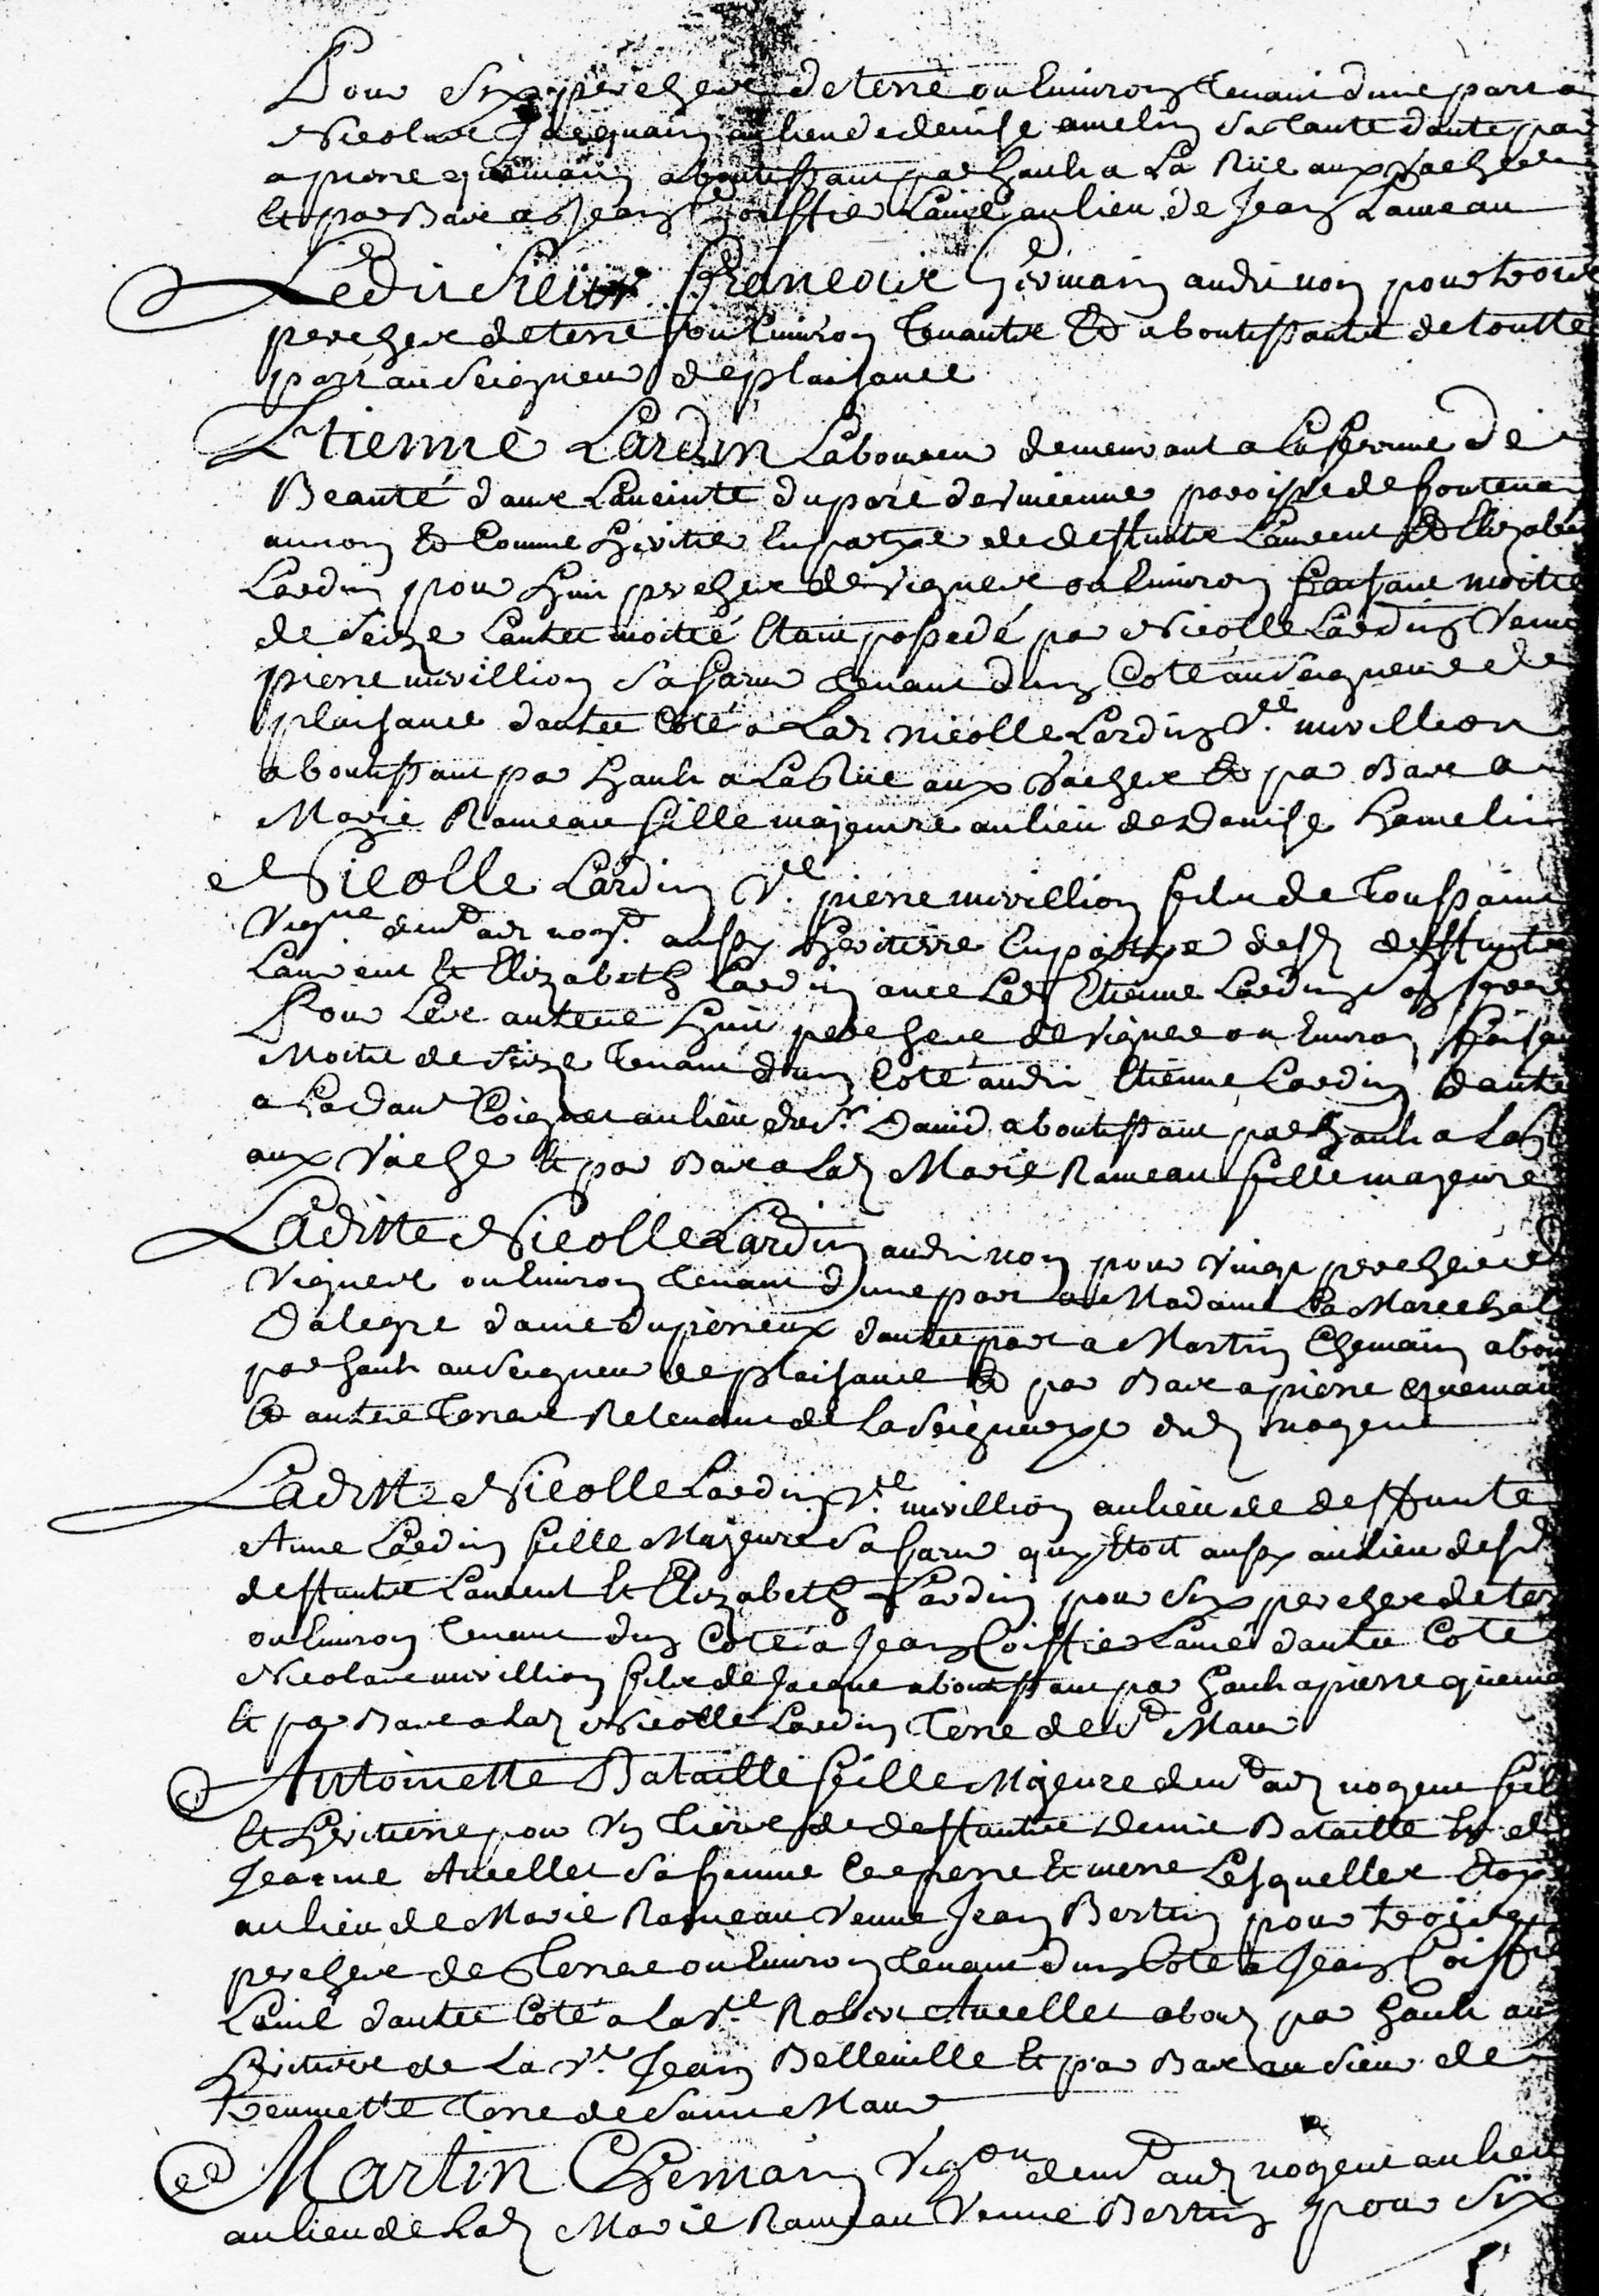 Pour six perches de terre ou Environ tenant d'une part a
Nicolas Jacquain au lieu de denise amelin sa tante d'autre par
a pierre quemain aboutissant par hault a La Rüe aux Vaches
Et par Bas a Jean Coiffier Lainé au lieu de Jean Rameau
Ledit Sieur Francois Germain audit nom pour trois
perches de terre ou Environ tenantes Et aboutissantes de toutte
part au Seigneur de plaisance
Etienne Lardin Laboureur demeurant a La ferme de
Beauté dans Lenceinte du parc de vincenne paroisse de fontena
au nom Et Comme heritier En partye de deffunte Laurent Et Elizabe
Lardin pour huit perches de vignes ou Environ faisant moitie
de seize L'autre moitié Etant possedé par Nicolle Lardin Veuve
pierre mivillion sa soeur tenant d'un Coté au Seigneur de
plaisance d'autre Coté a Lad. Nicolle Lardin Ve. mivillion
aboutissant par hault a La Rüe aux Vaches Et par Bas a
Marie Rameau fille majeure au lieu de Denise hamelin
Nicolle Lardin Ve. pierre mivillion fils de Toussaint
Vigne demt. aud. nogt. aussy heritiere En partye desd. deffunte
Laurent Et Elizabeth Lardin avec Led. Etienne Lardin son frere
Pour Les autres huit perches de vignes ou Environ faisa
Moitie de seize tenant d'un Coté audit Etienne Lardin d'autre
a La dame Coignet au lieu du Sr. David aboutissant par hault a La R
aux Vache Et par Bas a Lad. Marie Rameau fille majeure
Laditte Nicolle Lardin audit nom pour vingt perches de
Vignes ou Environ tenant d'une part a Madame La Marechal
Dalegre dame du perreux d'autre part a Martin Chemain abou
par hault au Seigneur de plaisance Et par Bas a pierre quemai
Et autres Terres Relevant de La Seigneurye dud. nogent
Laditte Nicolle Lardin Ve. mivillion au lieu de deffunte
Anne Lardin fille Majeure sa soeur quy Etoit aussy au lieu desd.
deffunte Laurent Et Elizabeth Lardin pour six perches de ter
ou Environ tenant d'un Coté a Jean Coiffier Lainé d'autre Coté
Nicolas mivillion fils de Jacque aboutissant par hault a pierre quema
Et par Bas a Lad. Nicolle Lardin Terre de St. Maur
Antoinette Bataille fille Majeure demt. aud. nogent fil
Et heritiere pour Un tiers de deffunte denis Bataille Et de
Jeanne Aucellet sa femme Ses pere Et mere Lesquelles Etoy
au lieu de Marie Rameau Veuve Jean Bertin pour trois
perches de Terre ou Environ tenant d'un Coté a Jean Coiffie
Lainé d'autre Coté a La Ve. Robert Aucellet abou. par hault au
heritiere de La Ve. Jean Belleville Et par Bas au Sieur de
Terre de Saint Maur
Martin Chemain Vigon demt. aud. nogent au lieu
au lieu de Lad. Marie Rameau Veuve Bertin pour Six